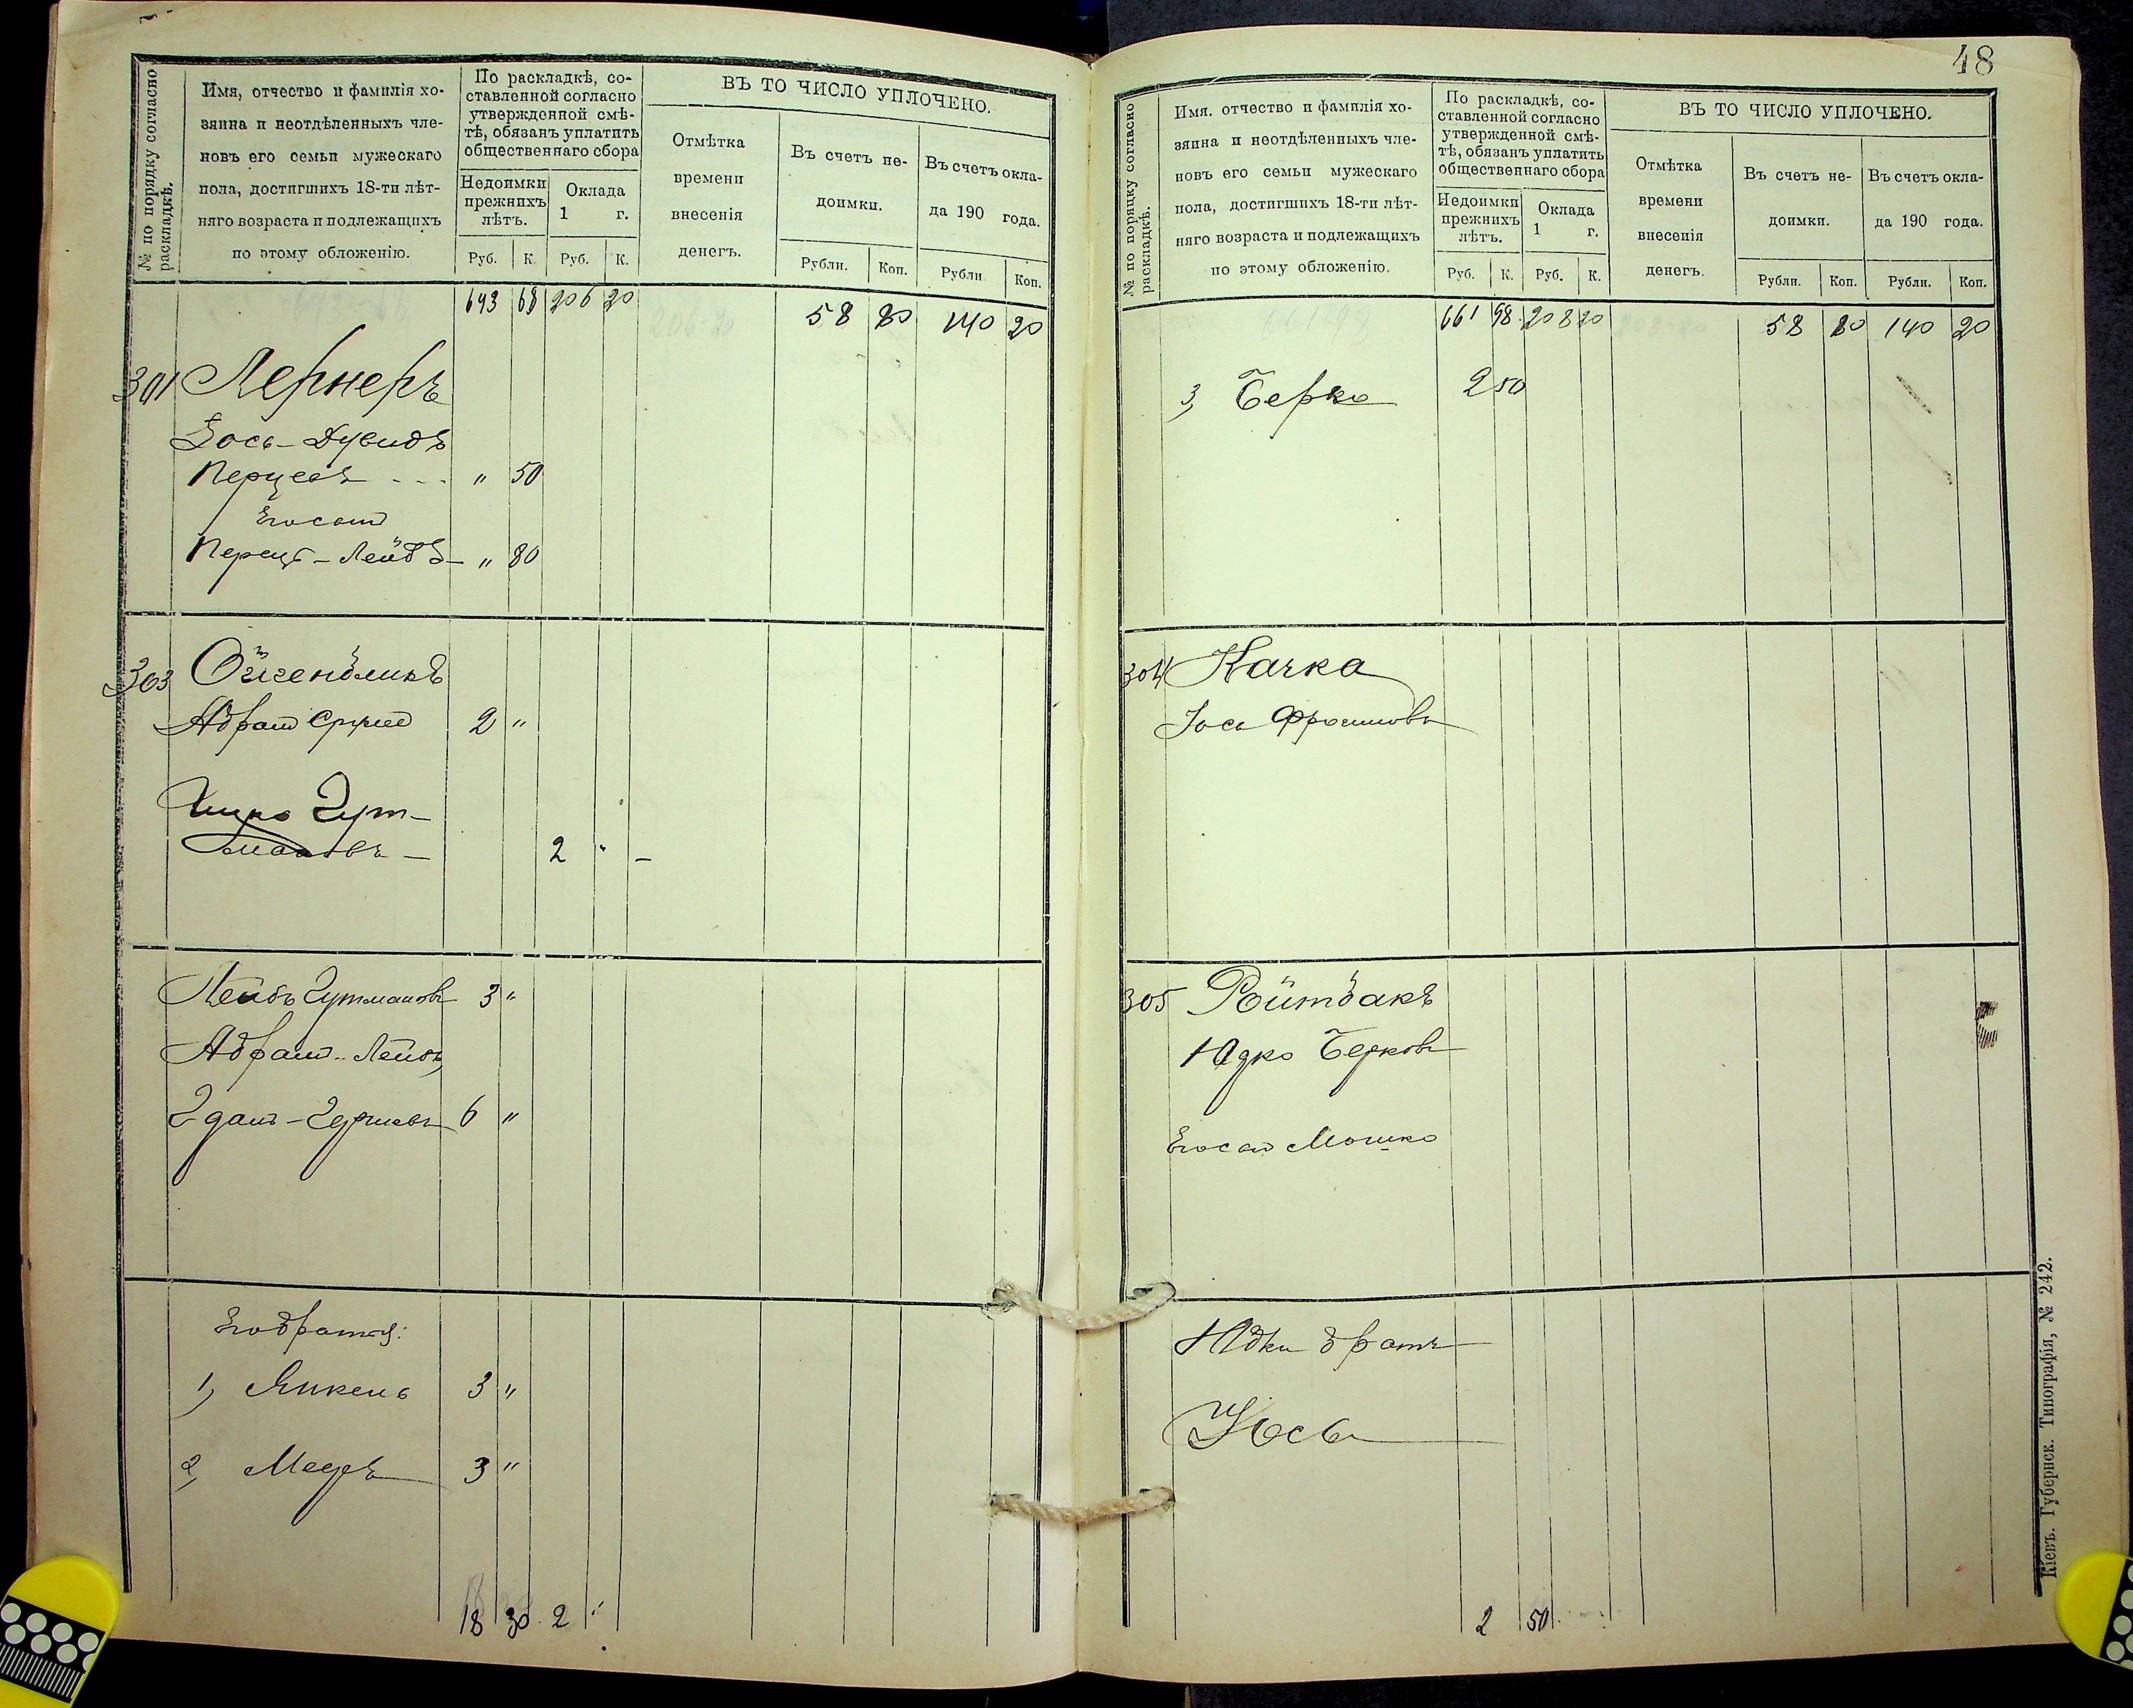 № по порядку согласно
раскладкѣ.
Имя, отчество и фамилія хо-
зяина и неотдѣленныхъ чле-
новъ его семьи мужескаго
пола, достигшихъ 18-ти лѣт-
няго возраста и подлежащихъ
по этому обложенію.
По раскладкѣ, со-
ставленной согласно
утвержденной смѣ-
тѣ, обязанъ уплатить
общественнаго сбора
Недоимки
прежнихъ
лѣтъ.
Оклада
1 г.
Руб. К. Руб. К.
ВЪ ТО ЧИСЛО УПЛОЧЕНО.
Отмѣтка
времени
внесенія
денегъ.
Въ счетъ не-
доимки.
Въ счетъ окла-
да 190 года.
Рубли. Коп. Рубли Коп.
643 68 206 20 58 80 140 20
301 Лернеръ
Іось-Дувидъ
Перцевъ - - - " 50
Его сынъ
Перецъ-Лейбъ - " 80
303 Ойгенбликъ
Абрамъ 2 "
Ицко Гут-
мановъ - 2 " -
Лейбъ Гутмановъ 3 "
Абрамъ-Лейбъ
6 "
Его братья:
1, Янкель 3 "
2, Мееръ 3 "
18 30 2 "
48
№ по порядку согласно
раскладкѣ.
Имя. отчество и фамилія хо-
зяина и неотдѣленныхъ чле-
новъ его семьи мужескаго
пола, достигшихъ 18-ти лѣт-
няго возраста и подлежащихъ
по этому обложенію.
По раскладкѣ, со-
ставленной согласно
утвержденной смѣ-
тѣ, обязанъ уплатить
общественнаго сбора
Недоимки
прежнихъ
лѣтъ.
Оклада
1 г.
Руб. К. Руб. К.
ВЪ ТО ЧИСЛО УПЛОЧЕНО.
Отмѣтка
времени
внесенія
денегъ.
Въ счетъ не-
доимки.
Въ счетъ окла-
да 190 года.
Рубли. Коп. Рубли. Коп.
661 98 208 20 58 80 140 20
3, Берко 2 50
304 Качка
Іось Фроимовъ
305 Ройтбакъ
Юдко Берковъ
Его сынъ Мошко
Юдки братъ
Іось
2 50
Кіевъ. Губернск. Типографія, № 242.